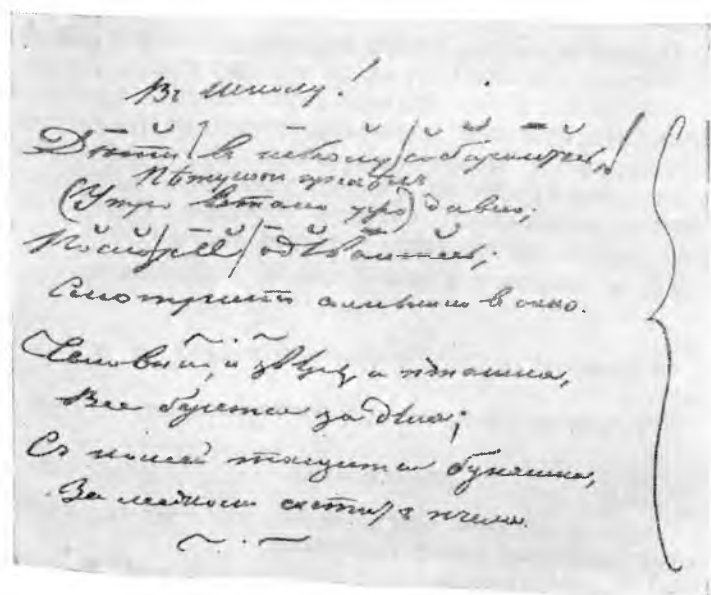 Въ школу!
Дѣти! въ школу собирайтесь!
Пѣтушокъ пропѣлъ
(Утро встало ужъ) давно;
Поскорѣе одѣвайтесь;
Смотритъ солнышко въ окно.
Человѣкъ, и звѣрь, и пташка,
Все берется за дѣла;
Съ ношей тащится букашка,
За медкомъ летитъ пчела.